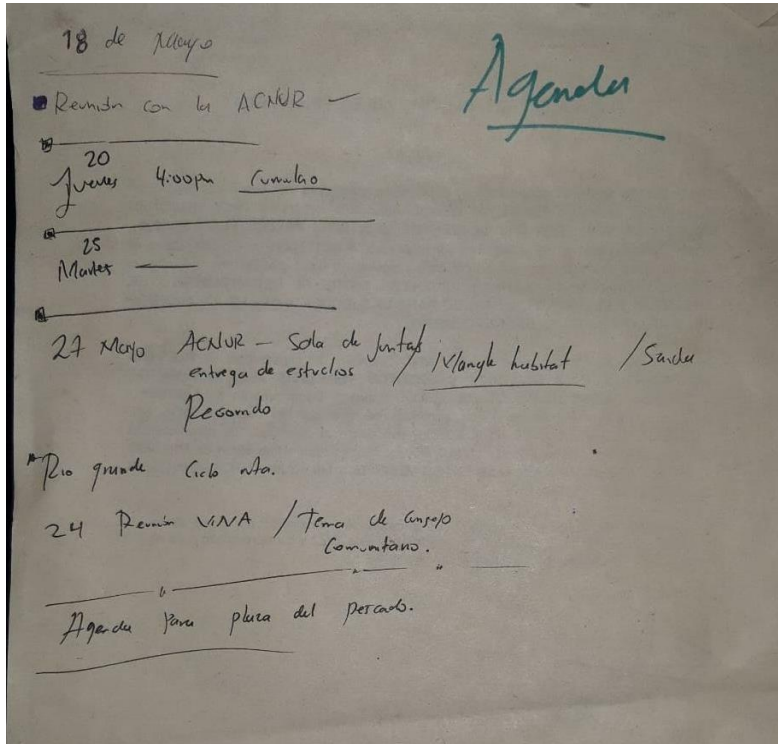 18 de Mayo
Agenda
Reunión con la ACNUR —
20
Jueves 4:00pm
25
Martes —
27 Mayo ACNUR — Sala de Juntas / habitat /
entrega de estudios
Recorrido
Rio grande Ciclo
24 Reunión / Tema de Consejo
Comunitario.
Agenda para plaza del pescado.